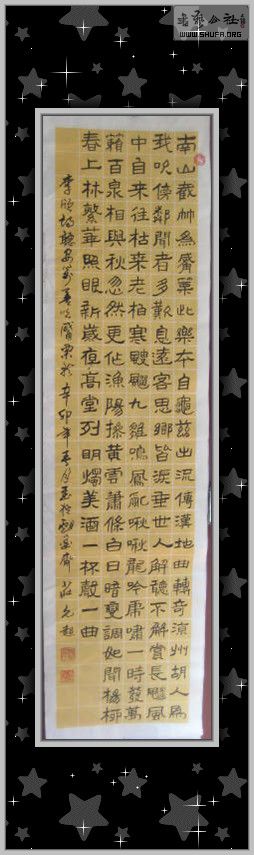 書藝公社
WWW.SHUFA.ORG
南山截竹為觱篥此樂本自龜茲出流傳漢地曲轉奇涼州胡人為
我吹傍鄰聞者多歎息遠客思鄉皆淚垂世人解聽不解賞長飆風
中自來往枯桒老柏寒颼飀九雛鳴鳳亂啾啾龍吟虎嘯一時發萬
籟百泉相與秋忽然更作漁陽摻黃雲蕭條白日暗變調如聞楊柳
春上林繁華照眼新歲夜高堂列明燭美酒一杯聲一曲
李頎 聽安萬善吹觱篥 於辛卯年春月 莊允超